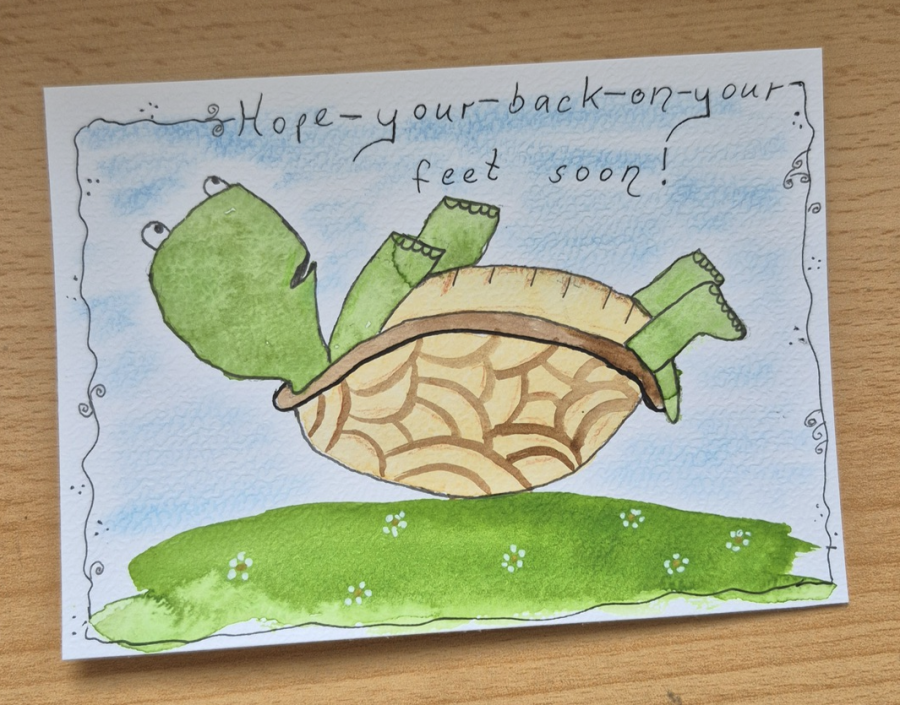 Hope-your-back-on-your-
feet soon!